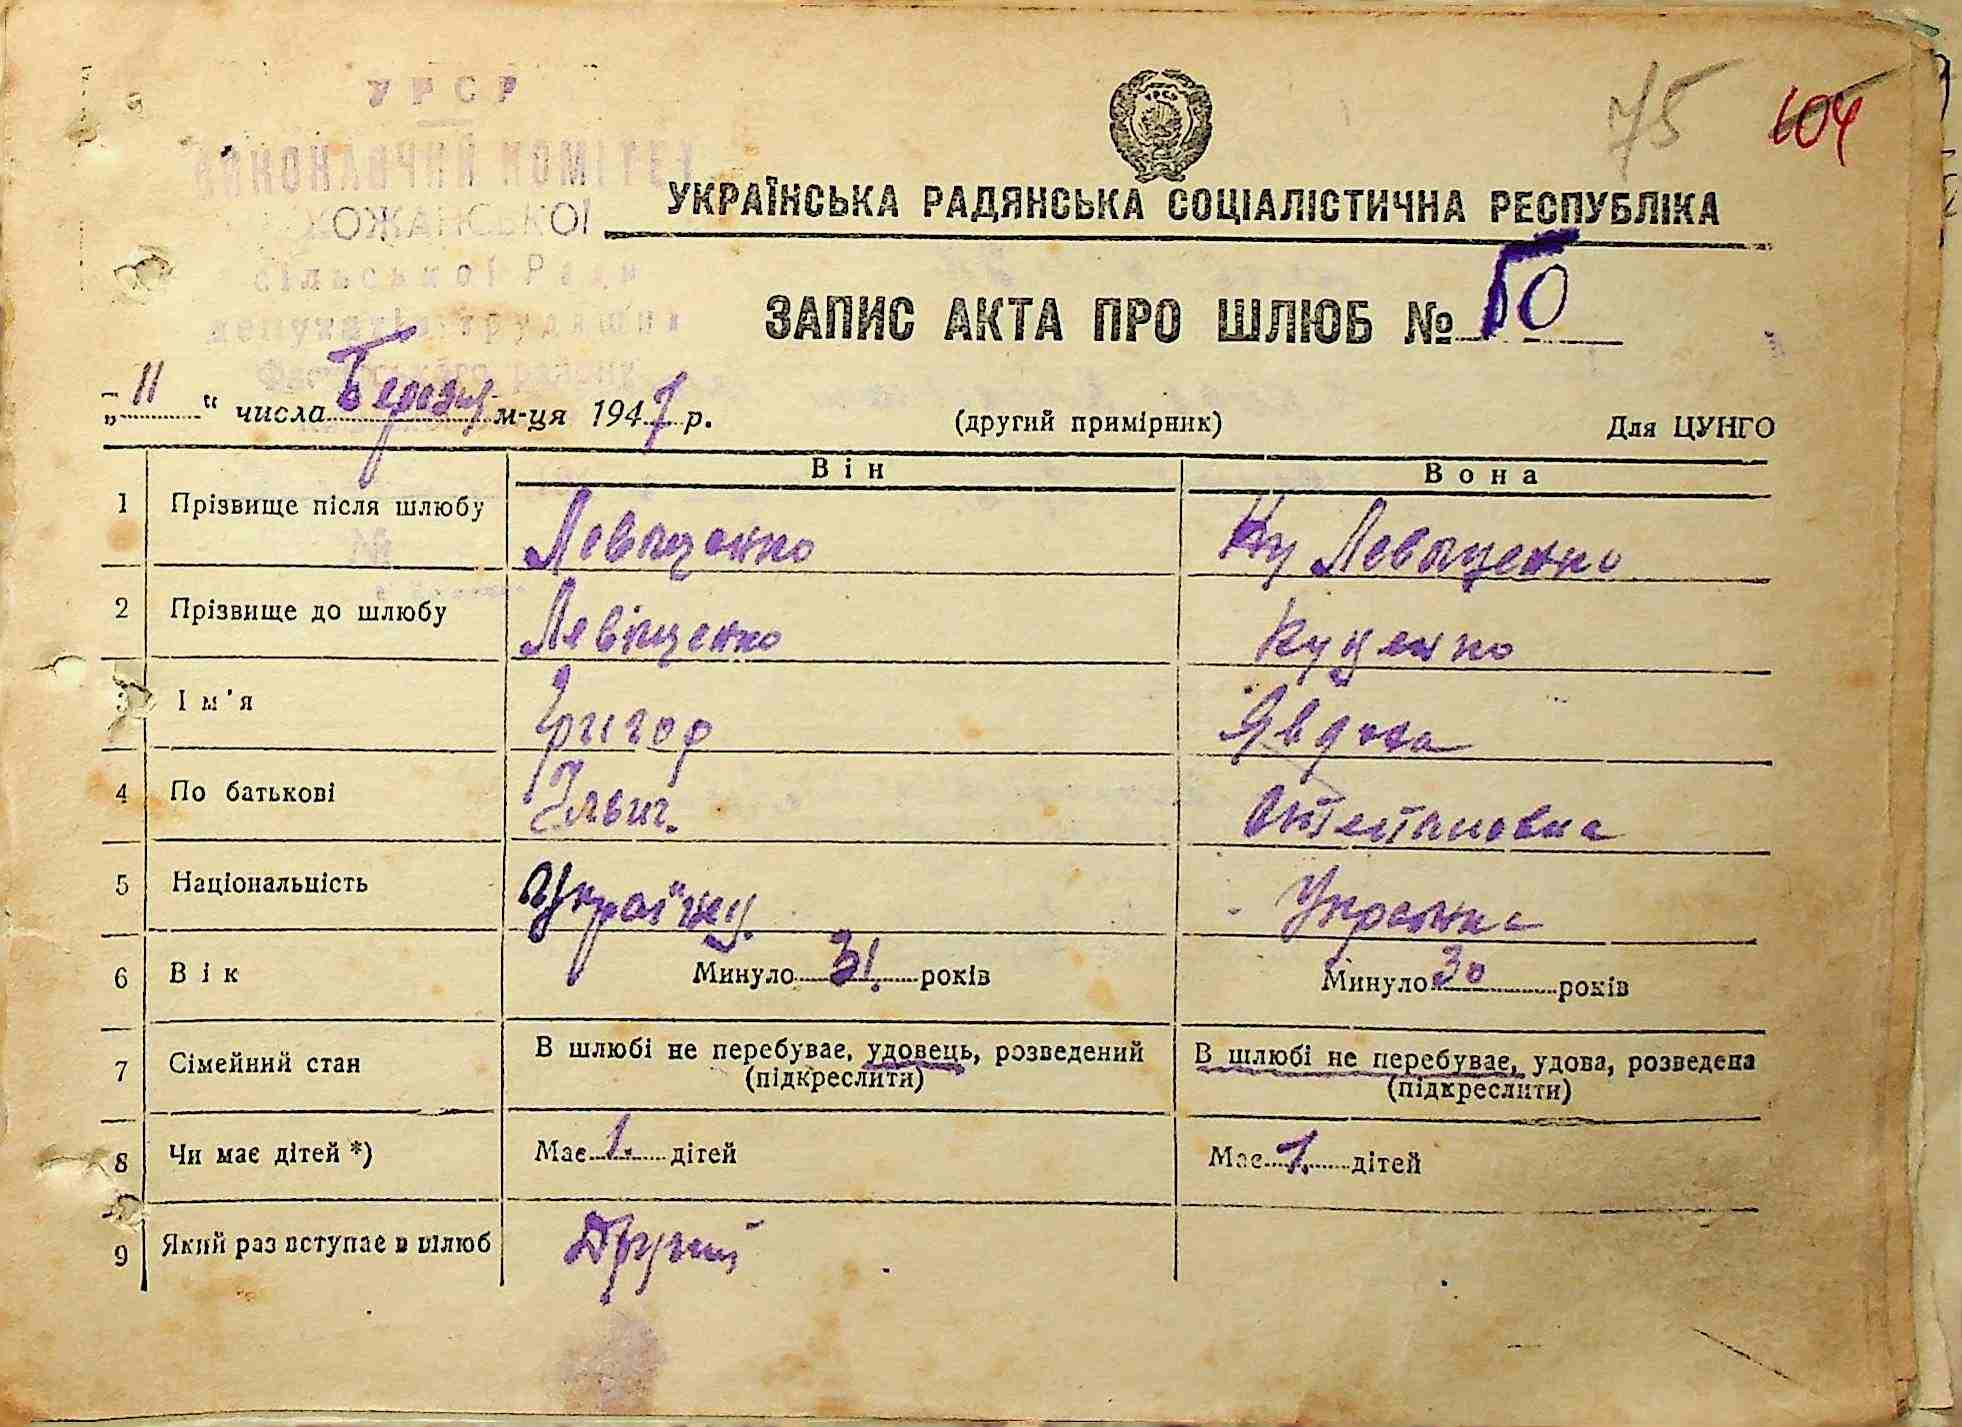 УРСР
ВИКОНАВЧИЙ КОМІТЕТ
КОЖАНСЬКОЇ
сільської Ради
депутатів трудящих
Фастівського району
75 104
УРСР
УКРАЇНСЬКА РАДЯНСЬКА СОЦІАЛІСТИЧНА РЕСПУБЛІКА
ЗАПИС АКТА ПРО ШЛЮБ №
„ 11 “ числа Березня м-ця 1947 р. (другий примірник) Для ЦУНГО
Він Вона
1 Прізвище після шлюбу Левіщенко Ку Левіщенко
2 Прізвище до шлюбу Левіщенко Куценко
3 Ім'я Григор Явдоха
4 По батькові Ільич. Степановна
5 Національність Українец. Українка
6 Вік Минуло 31. років Минуло 30 років
7 Сімейний стан В шлюбі не перебуває, удовець, розведений В шлюбі не перебуває, удова, розведена
(підкреслити) (підкреслити)
8 Чи має дітей *) Має 1. дітей Має 1. дітей
9 Який раз вступає в шлюб Другий